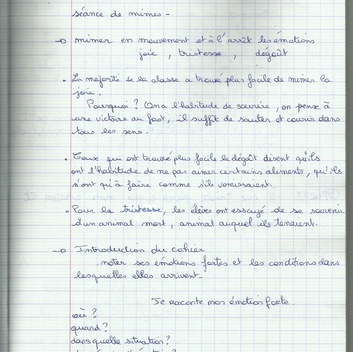 séance de mimes -
→ mimer en mouvement et à l'arrêt les émotions
joie, tristesse, dégoût
• La majorité de la classe a trouvé plus facile de mimer la
joie.
Pourquoi ? On a l'habitude de sourire, on pense à
une victoire au foot, il suffit de sauter et courir dans
tous les sens.
• Ceux qui ont trouvé plus facile le dégoût disent qu'ils
ont l'habitude de ne pas aimer certains aliments, qu'ils
n'ont qu'à faire comme s'ils vomissaient.
• Pour la tristesse, les élèves ont essayé de se souvenir
d'un animal mort, animal auquel ils tenaient.
→ Introduction du cahier
noter ses émotions fortes et les conditions dans
lesquelles elles arrivent.
Je raconte mon émotion forte
où ?
quand ?
dans quelle situation ?